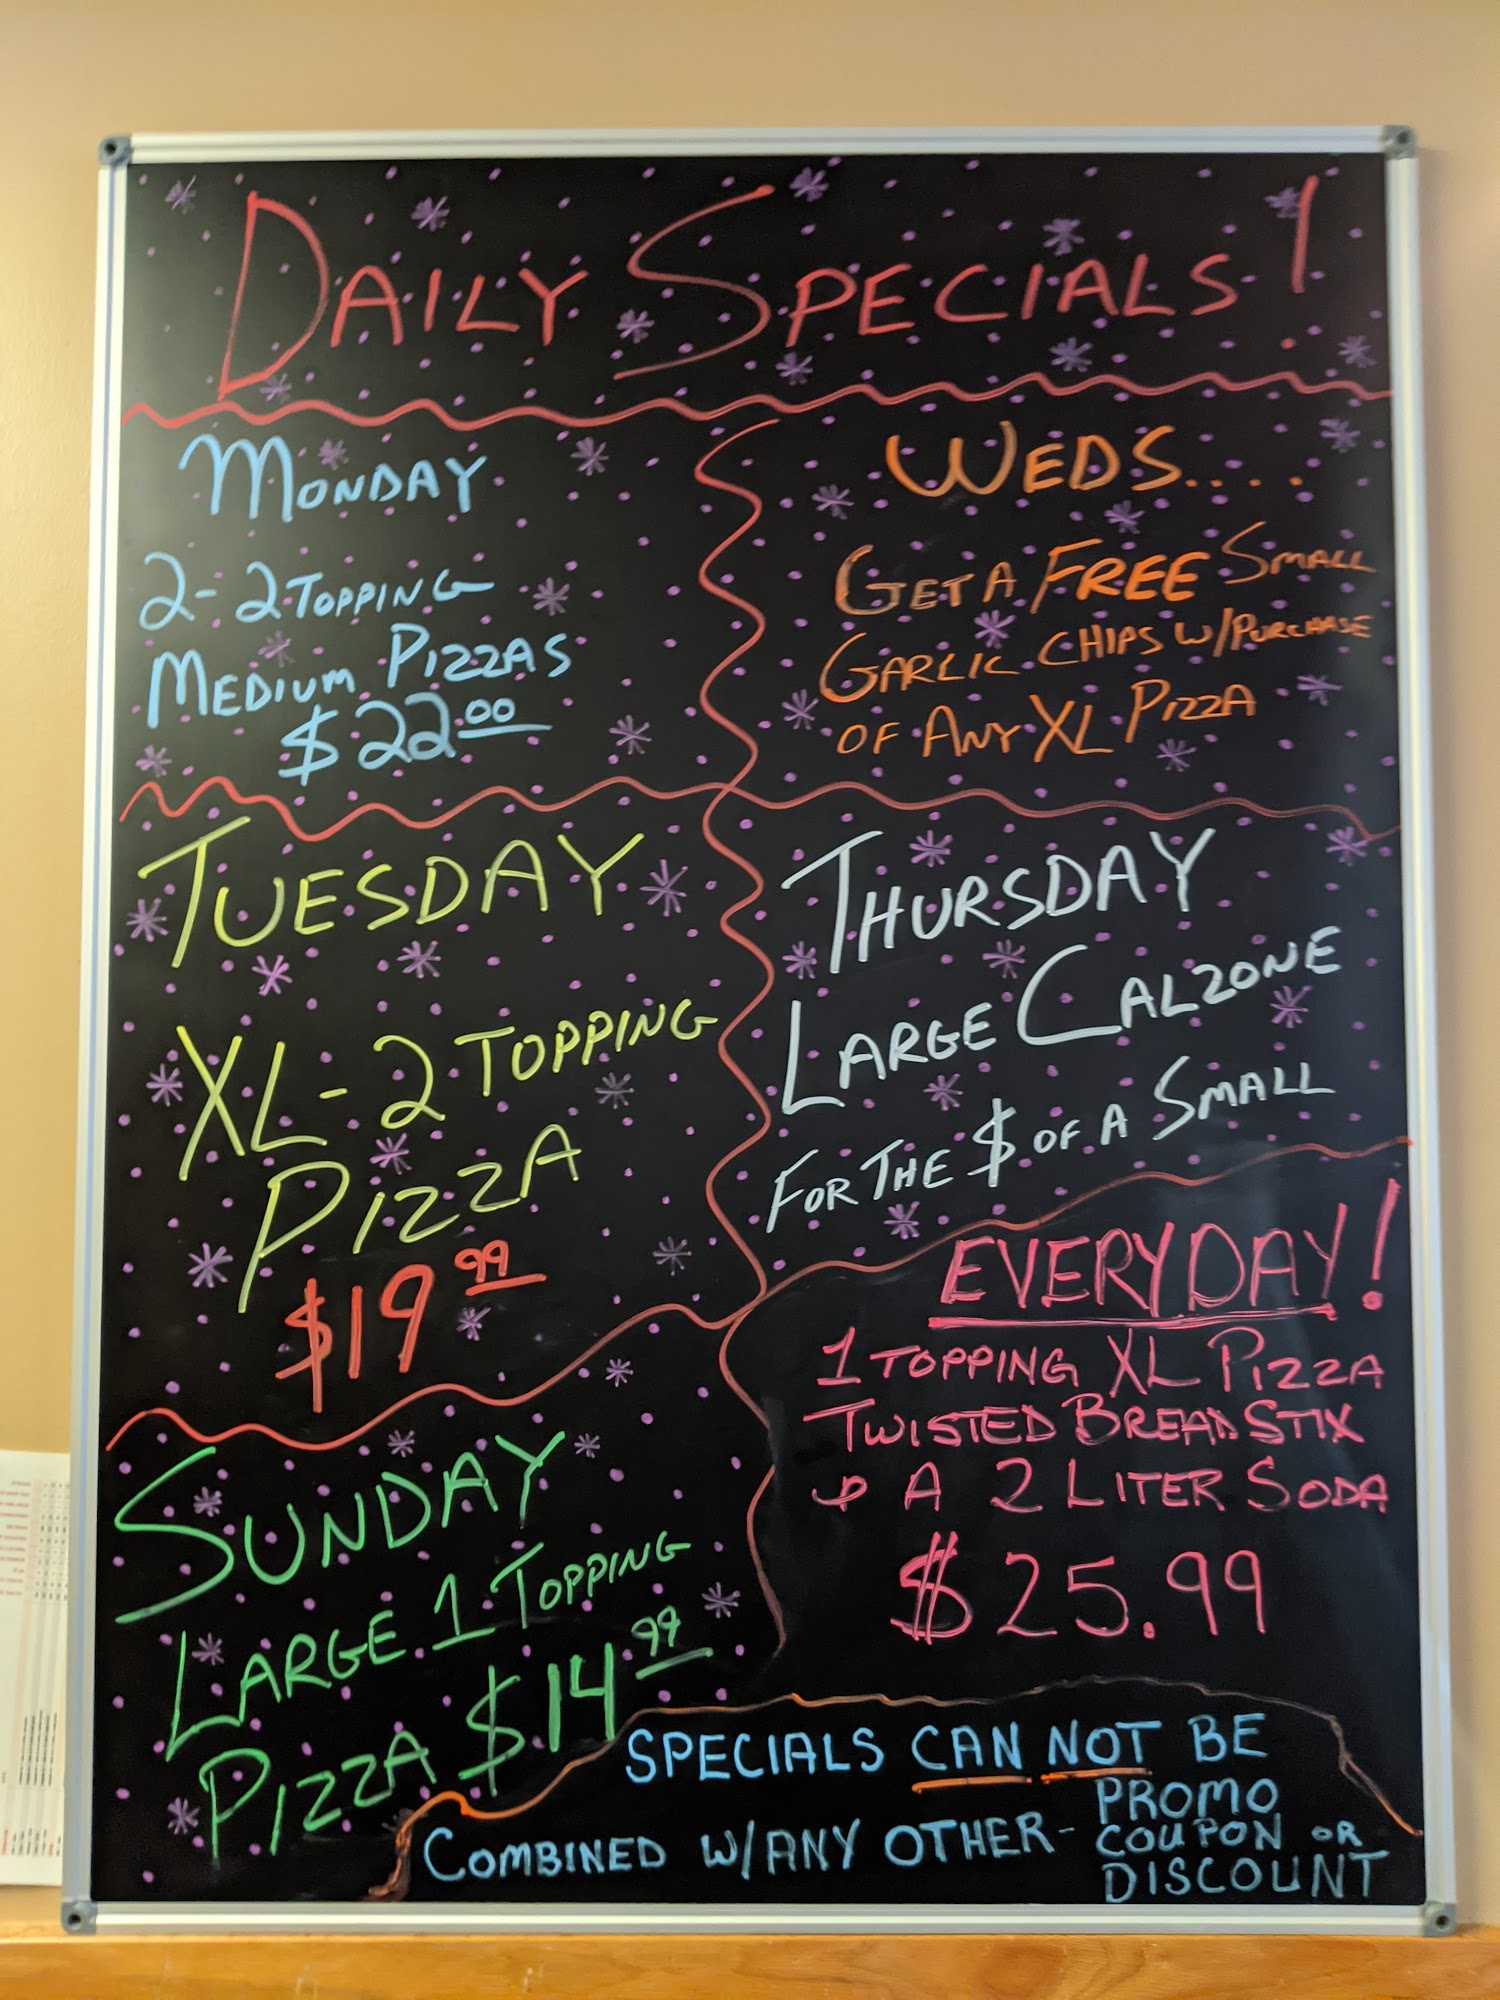 DAILY SPECIALS!
MONDAY
2-2 TOPPING
MEDIUM PIZZAS
$22.00
WEDS....
GET A FREE SMALL
GARLIC CHIPS W/PURCHASE
OF ANY XL PIZZA
TUESDAY
XL-2 TOPPING
PIZZA
$19.99
THURSDAY
LARGE CALZONE
FOR THE $ OF A SMALL
SUNDAY
LARGE 1 TOPPING
PIZZA $14.99
EVERYDAY!
1 TOPPING XL PIZZA
TWISTED BREAD STIX
& A 2 LITER SODA
$25.99
SPECIALS CAN NOT BE
COMBINED W/ANY OTHER-
PROMO
COUPON OR
DISCOUNT